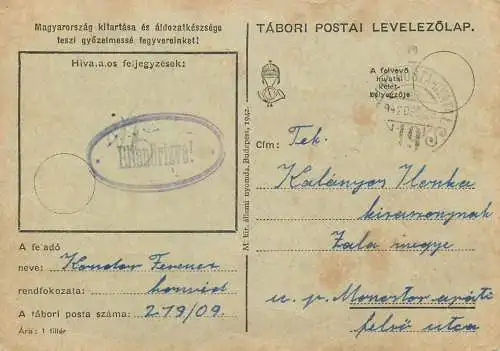 Magyarország kitartása és áldozatkészsége
teszi győzelmessé fegyvereinket!
Hiva.a.os feljegyzések:
Ellenőrizve!
A fe'adó
neve: Kondor Ferenc
rendfokozata: honvéd
A tábori posta száma: 219/09
Ára: 1 fillér
M. kir. állami nyomda, Budapest, 1942.
TÁBORI POSTAI LEVELEZŐLAP.
A felvevő
hivatal
kelet-
bélyegzője
Cím: Tek.
Kalányos Ilonka
kisasszonynak
Zala megye
u. p. Monostor apáti
felső utca